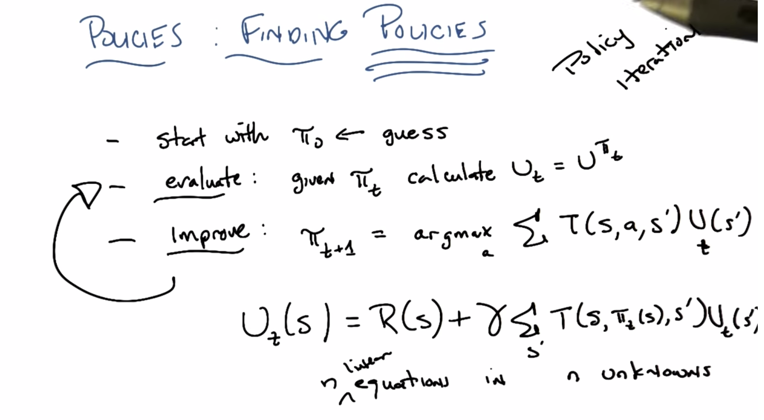 POLICIES : FINDING POLICIES
Policy
iteration
- start with π₀ ← guess
- evaluate : given π_t calculate U_t = U^π_t
- improve : π_t+1 = argmax_a Σ T(s,a,s') U_t(s')
U_t(s) = R(s) + γ Σ_s' T(s, π_t(s), s') U_t(s')
n linear equations in n unknowns